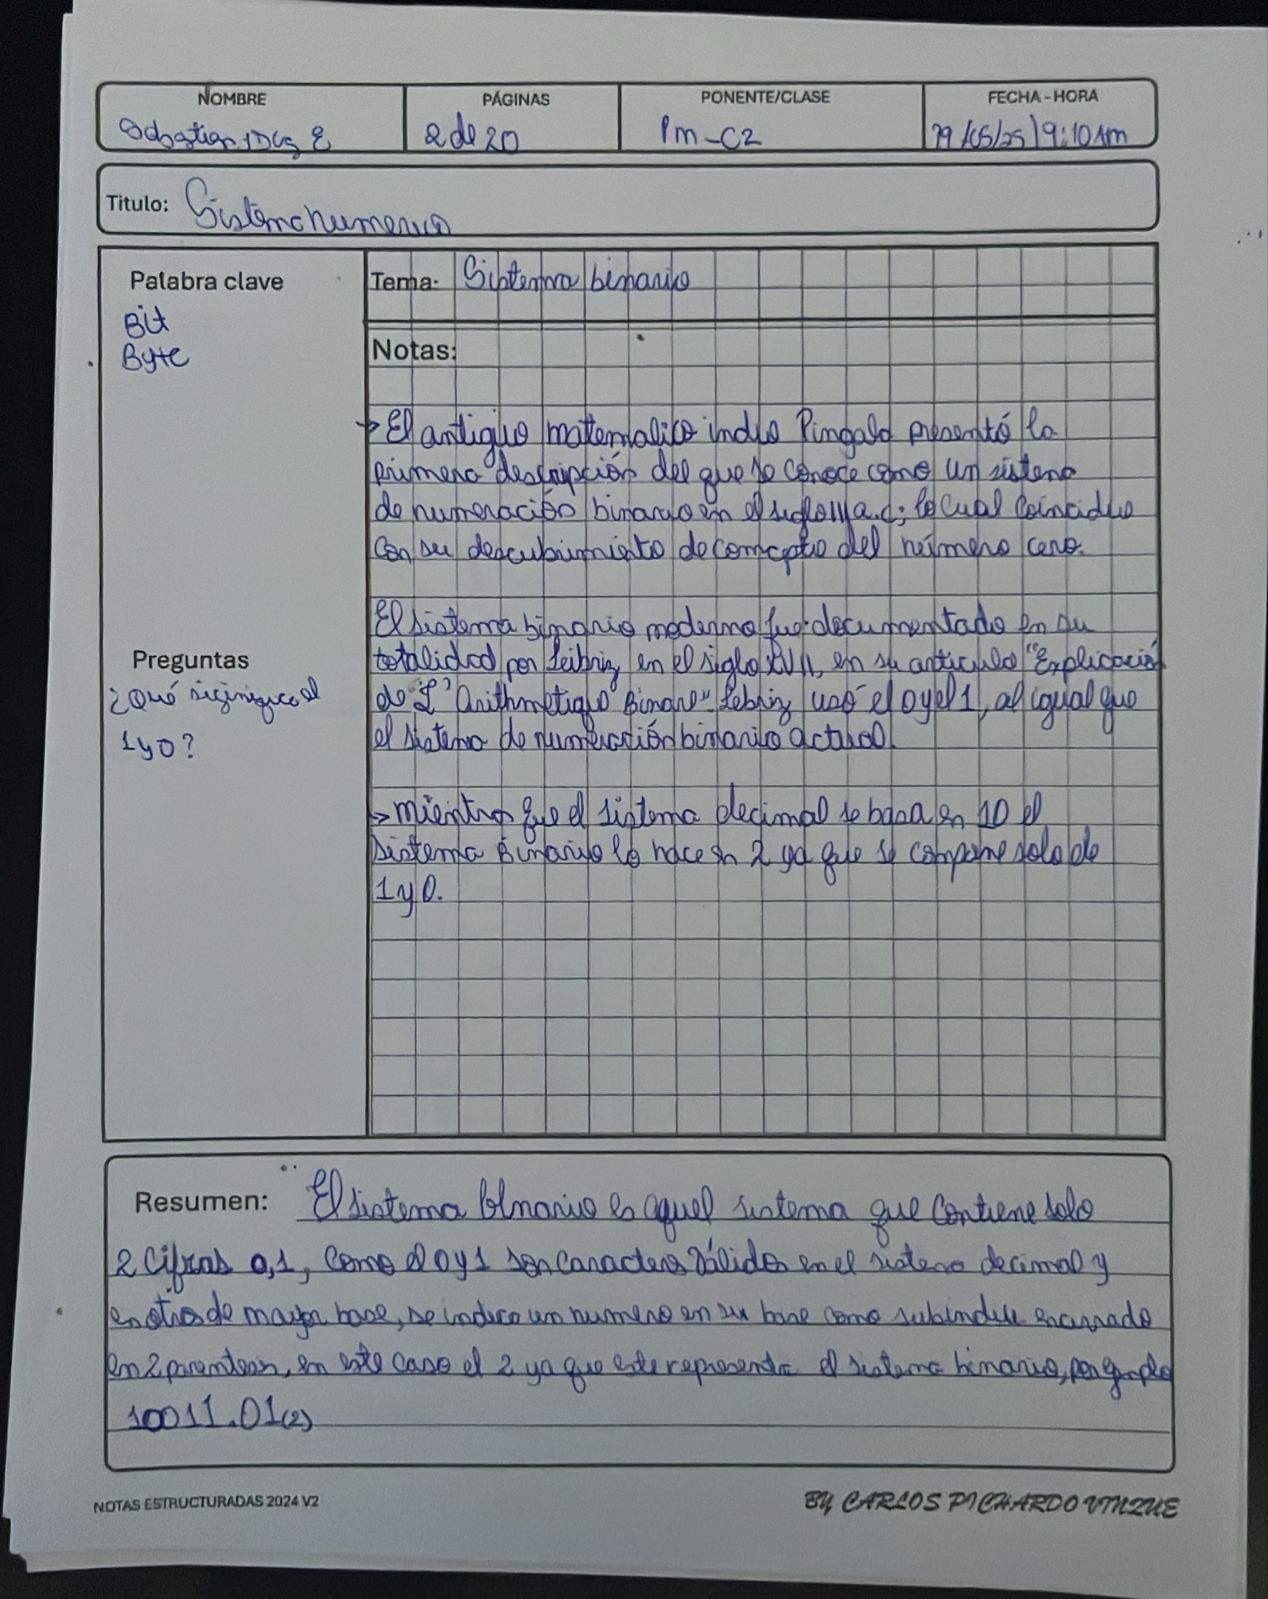 NOMBRE
PÁGINAS
PONENTE/CLASE
FECHA - HORA
2 de 20
Pm-C2
29/05/25 | 9:10 Am
Titulo: Sistema numerico
Palabra clave
Bit
Byte
Tema: Sistema binario
Notas:
→ El antiguo matematico indio Pingala presentó la
primera descripción del que se conoce como un sistema
de numeración binario en el siglo a.c; lo cual coincidio
con su descubrimiento de concepto del número cero.
El sistema binario moderno fue documentado en su
totalidad por Leibniz en el siglo XVII, en su articulo "Explicación
de L' Arithmetique Binare" Lebniz usó el 0 y el 1, al igual que
el sistema de numeración binario actual.
> mientras que el sistema decimal se basa en 10 el
sistema Binario lo hace en 2 ya que se compone solo de
1 y 0.
Preguntas
¿Qué significa el
1 y 0?
Resumen: El sistema binario es aquel sistema que contiene solo
2 cifras 0,1, como el 0 y 1 son caracteres válidos en el sistema decimal y
en otros de mayor base, se indica un numero en su base como subindice encerrado
en 2 parentesis, en este caso el 2 ya que este representa el sistema binario, por ejemplo
10011.01(2)
NOTAS ESTRUCTURADAS 2024 V2
BY CARLOS PICHARDO VIUQUE